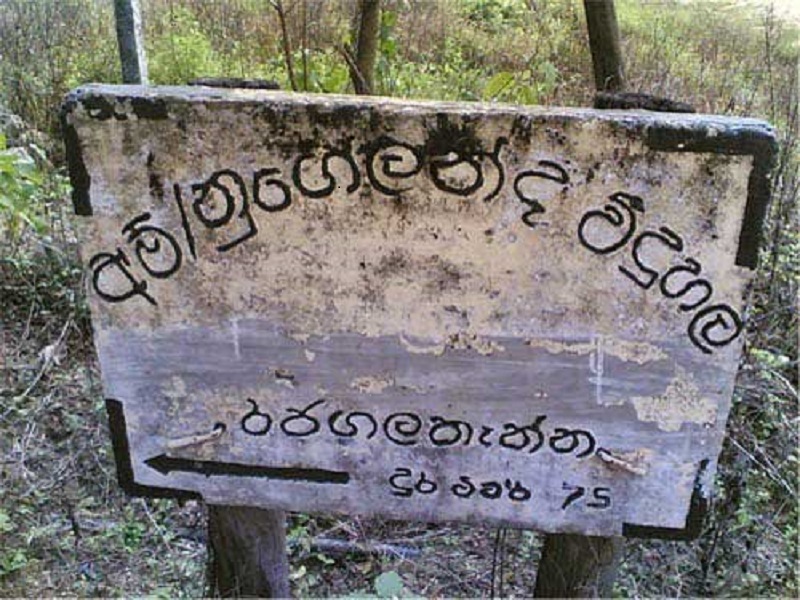 අම්/නුගේලන්ද විදුහල
රජගලතැන්න
දුර මීටර් 75